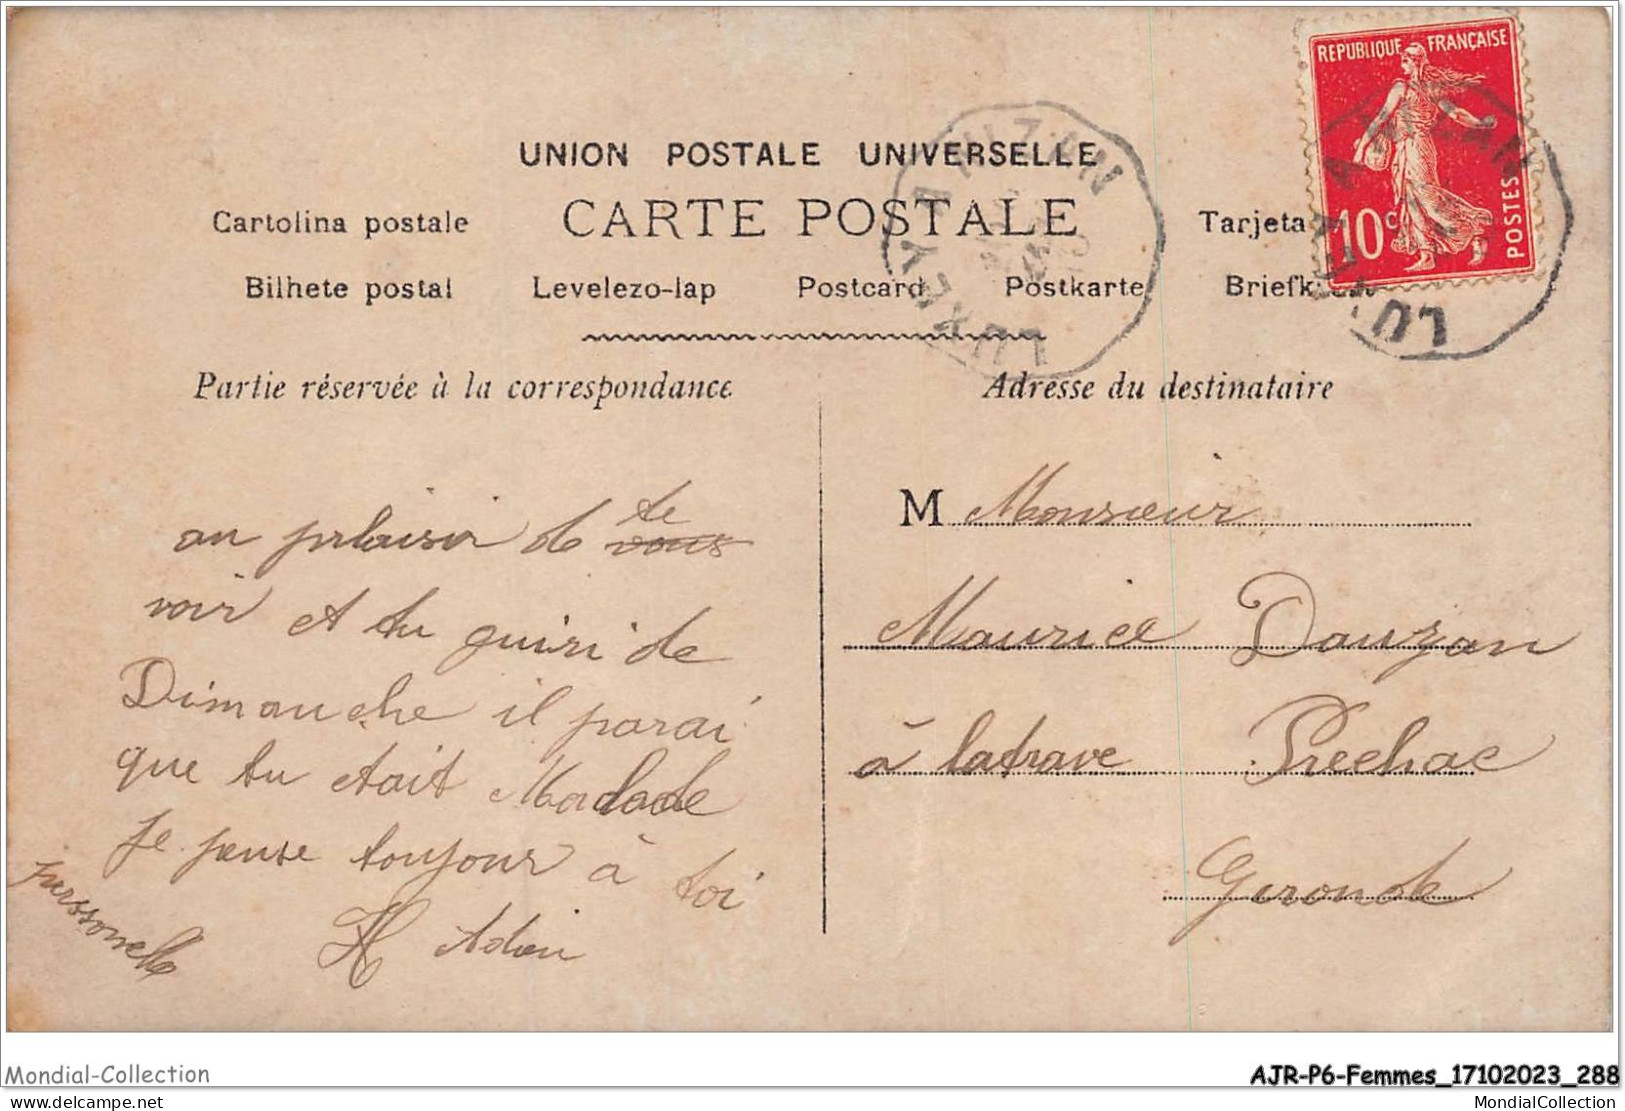 REPUBLIQUE FRANÇAISE
10c POSTES
LUXEY A MIZAN
UNION POSTALE UNIVERSELLE
CARTE POSTALE
Cartolina postale
Tarjeta
Bilhete postal Levelezo-lap Postcard Postkarte Briefk
Partie réservée à la correspondance
Adresse du destinataire
au plaisir de te vous
voir et tu guiri de
Dimanche il parai
que tu etait Malade
Je panse toujour à toi
H Adieu
purssonelle
M Monsieur
Maurice Dauzan
à latrave Prechac
Gironde
Mondial-Collection
AJR-P6-Femmes_17102023_288
www.delcampe.net
MondialCollection